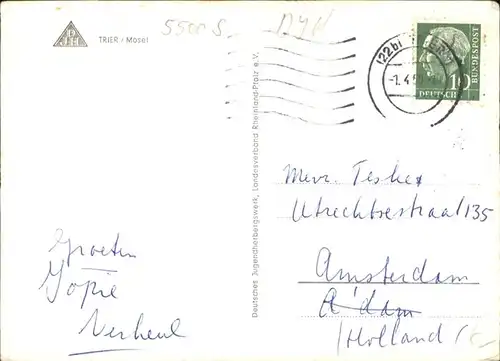 TRIER / Mosel
5500 S
(22b)
-1.4.5
10
DEUTSCHE
BUNDESPOST
Deutsches Jugendherbergswerk, Landesverband Rheinland-Pfalz e.V.
Mevr. Teske
Utrechtsestraat 135
Amsterdam
A'dam
/Holland/
Groeten
Jopie
Verheul